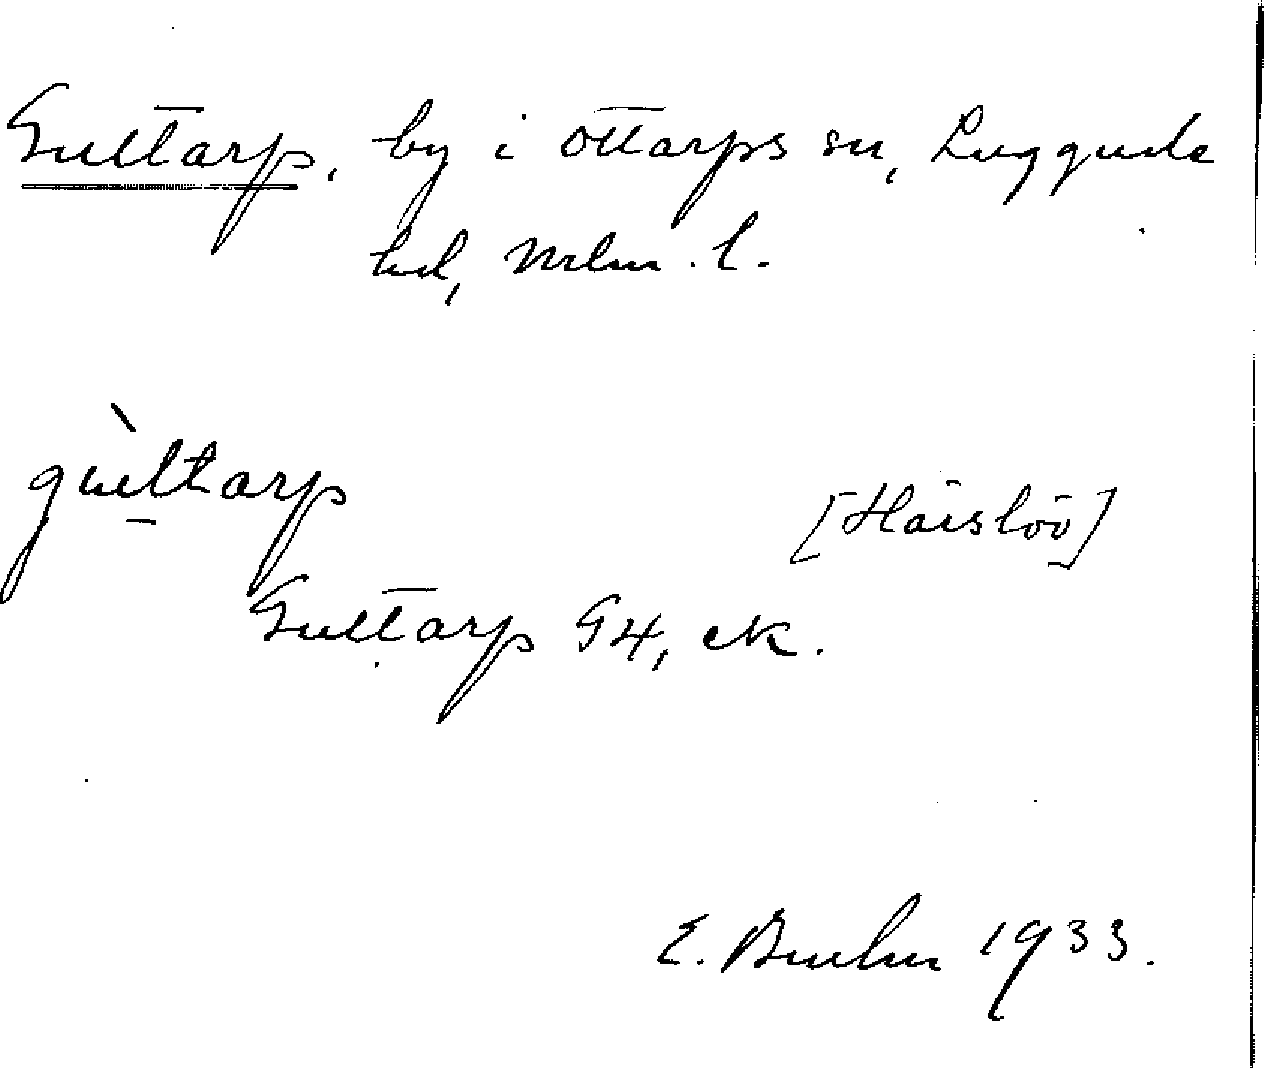 Gulltarp, by i Ottarps sn, Luggude
hd, Mlm. l.
gùlltarp
[Häislöv]
Gulltarp G4, ek.
E. Bruhn 1933.